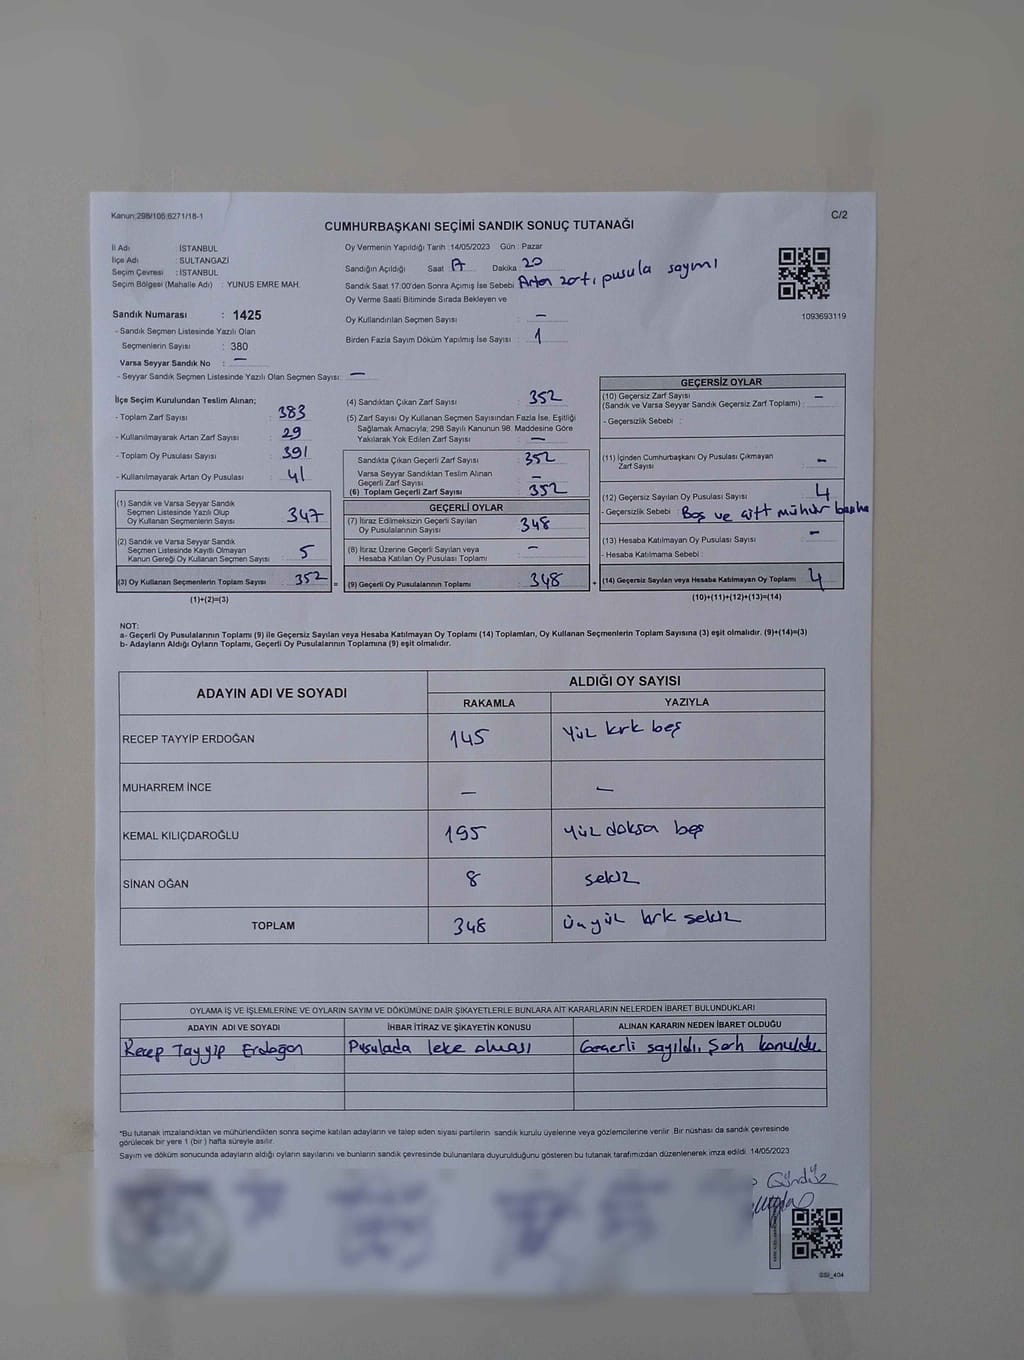 Kanun:298/105:6271/18-1
C/2
CUMHURBAŞKANI SEÇİMİ SANDIK SONUÇ TUTANAĞI
İl Adı : İSTANBUL
İlçe Adı : SULTANGAZİ
Seçim Çevresi : İSTANBUL
Seçim Bölgesi (Mahalle Adı) : YUNUS EMRE MAH.
Oy Vermenin Yapıldığı Tarih :14/05/2023 Gün : Pazar
Sandığın Açıldığı Saat 17 Dakika 20
Sandık Saat 17:00'den Sonra Açımış İse Sebebi Artan zarf, pusula sayımı
Oy Verme Saati Bitiminde Sırada Bekleyen ve
Oy Kullandırılan Seçmen Sayısı : –
Birden Fazla Sayım Döküm Yapılmış İse Sayısı : 1
1093693119
Sandık Numarası : 1425
- Sandık Seçmen Listesinde Yazılı Olan
Seçmenlerin Sayısı : 380
Varsa Seyyar Sandık No : –
- Seyyar Sandık Seçmen Listesinde Yazılı Olan Seçmen Sayısı: –
İlçe Seçim Kurulundan Teslim Alınan;
- Toplam Zarf Sayısı : 383
- Kullanılmayarak Artan Zarf Sayısı : 29
- Toplam Oy Pusulası Sayısı : 391
- Kullanılmayarak Artan Oy Pusulası : 41
(1) Sandık ve Varsa Seyyar Sandık
Seçmen Listesinde Yazılı Olup
Oy Kullanan Seçmenlerin Sayısı : 347
(2) Sandık ve Varsa Seyyar Sandık
Seçmen Listesinde Kayıtlı Olmayan
Kanun Gereği Oy Kullanan Seçmen Sayısı : 5
(3) Oy Kullanan Seçmenlerin Toplam Sayısı : 352
(1)+(2)=(3)
(4) Sandıktan Çıkan Zarf Sayısı : 352
(5) Zarf Sayısı Oy Kullanan Seçmen Sayısından Fazla İse, Eşitliği
Sağlamak Amacıyla, 298 Sayılı Kanunun 98. Maddesine Göre
Yakılarak Yok Edilen Zarf Sayısı : –
Sandıkta Çıkan Geçerli Zarf Sayısı : 352
Varsa Seyyar Sandıktan Teslim Alınan
Geçerli Zarf Sayısı : –
(6) Toplam Geçerli Zarf Sayısı : 352
GEÇERLİ OYLAR
(7) İtiraz Edilmeksizin Geçerli Sayılan
Oy Pusulalarının Sayısı : 348
(8) İtiraz Üzerine Geçerli Sayılan veya
Hesaba Katılan Oy Pusulası Toplamı : –
= (9) Geçerli Oy Pusulalarının Toplamı : 348
GEÇERSİZ OYLAR
(10) Geçersiz Zarf Sayısı
(Sandık ve Varsa Seyyar Sandık Geçersiz Zarf Toplamı) : –
- Geçersizlik Sebebi :
(11) İçinden Cumhurbaşkanı Oy Pusulası Çıkmayan
Zarf Sayısı : –
(12) Geçersiz Sayılan Oy Pusulası Sayısı : 4
- Geçersizlik Sebebi : Boş ve çift mühür basma
(13) Hesaba Katılmayan Oy Pusulası Sayısı : –
- Hesaba Katılmama Sebebi :
+ (14) Geçersiz Sayılan veya Hesaba Katılmayan Oy Toplamı : 4
(10)+(11)+(12)+(13)=(14)
NOT:
a- Geçerli Oy Pusulalarının Toplamı (9) ile Geçersiz Sayılan veya Hesaba Katılmayan Oy Toplamı (14) Toplamları, Oy Kullanan Seçmenlerin Toplam Sayısına (3) eşit olmalıdır. (9)+(14)=(3)
b- Adayların Aldığı Oyların Toplamı, Geçerli Oy Pusulalarının Toplamına (9) eşit olmalıdır.
ADAYIN ADI VE SOYADI ALDIĞI OY SAYISI
RAKAMLA YAZIYLA
RECEP TAYYİP ERDOĞAN 145 Yüz kırk beş
MUHARREM İNCE – –
KEMAL KILIÇDAROĞLU 195 Yüz doksa beş
SİNAN OĞAN 8 sekiz
TOPLAM 348 Üçyüz kırk sekiz
OYLAMA İŞ VE İŞLEMLERİNE VE OYLARIN SAYIM VE DÖKÜMÜNE DAİR ŞİKAYETLERLE BUNLARA AİT KARARLARIN NELERDEN İBARET BULUNDUKLARI
ADAYIN ADI VE SOYADI İHBAR İTİRAZ VE ŞİKAYETİN KONUSU ALINAN KARARIN NEDEN İBARET OLDUĞU
Recep Tayyip Erdoğan Pusulada leke olması Geçerli sayıldı. Şerh konuldu.
*Bu tutanak imzalandıktan ve mühürlendikten sonra seçime katılan adayların ve talep eden siyasi partilerin sandık kurulu üyelerine veya gözlemcilerine verilir. Bir nüshası da sandık çevresinde
görülecek bir yere 1 (bir ) hafta süreyle asılır.
Sayım ve döküm sonucunda adayların aldığı oyların sayılarını ve bunların sandık çevresinde bulunanlara duyurulduğunu gösteren bu tutanak tarafımızdan düzenlenerek imza edildi. 14/05/2023
Gündüz
SSİ_404